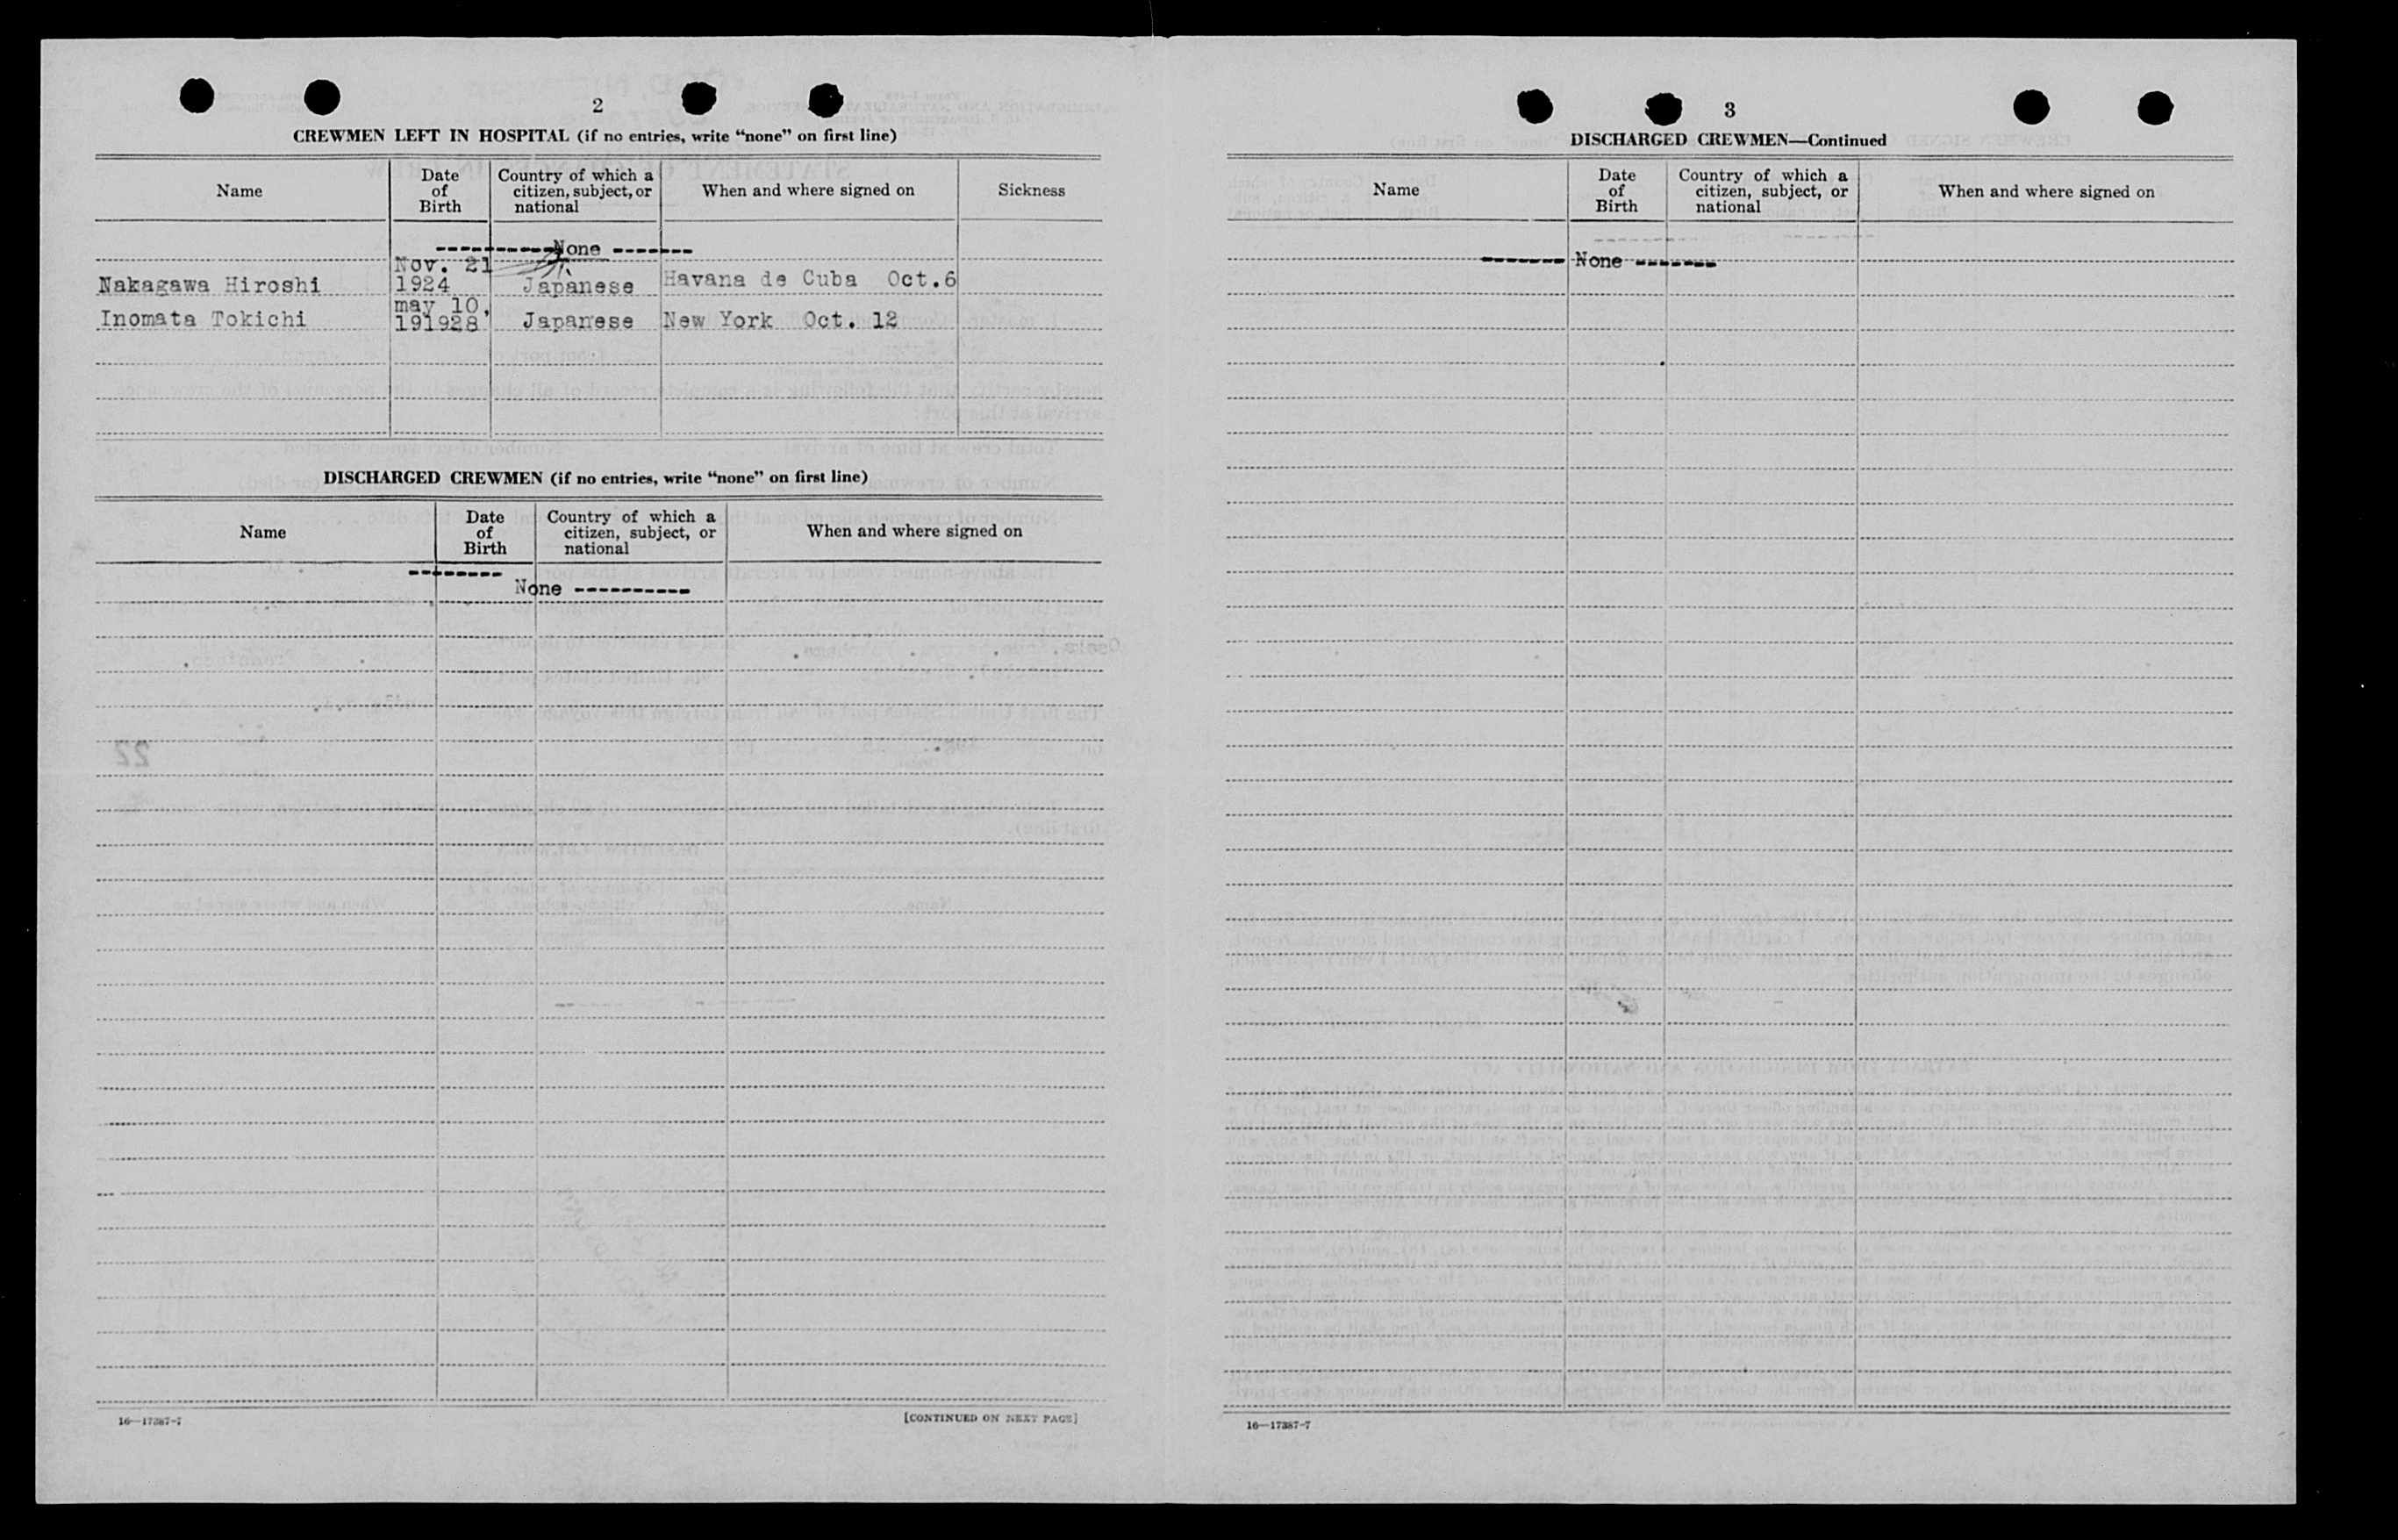 2
CREWMEN LEFT IN HOSPITAL (if no entries, write “none” on first line)
Name
Date of Birth
Country of which a citizen, subject, or national
When and where signed on
Sickness
------------None -------
Nakagawa Hiroshi Nov. 21 1924 Japanese Havana de Cuba Oct.6
Inomata Tokichi may 10, 191928 Japanese New York Oct. 12
DISCHARGED CREWMEN (if no entries, write “none” on first line)
Name
Date of Birth
Country of which a citizen, subject, or national
When and where signed on
-------- None ----------
16—17387-7
[CONTINUED ON NEXT PAGE]
3
DISCHARGED CREWMEN—Continued
Name
Date of Birth
Country of which a citizen, subject, or national
When and where signed on
-------- None --------
16—17387-7